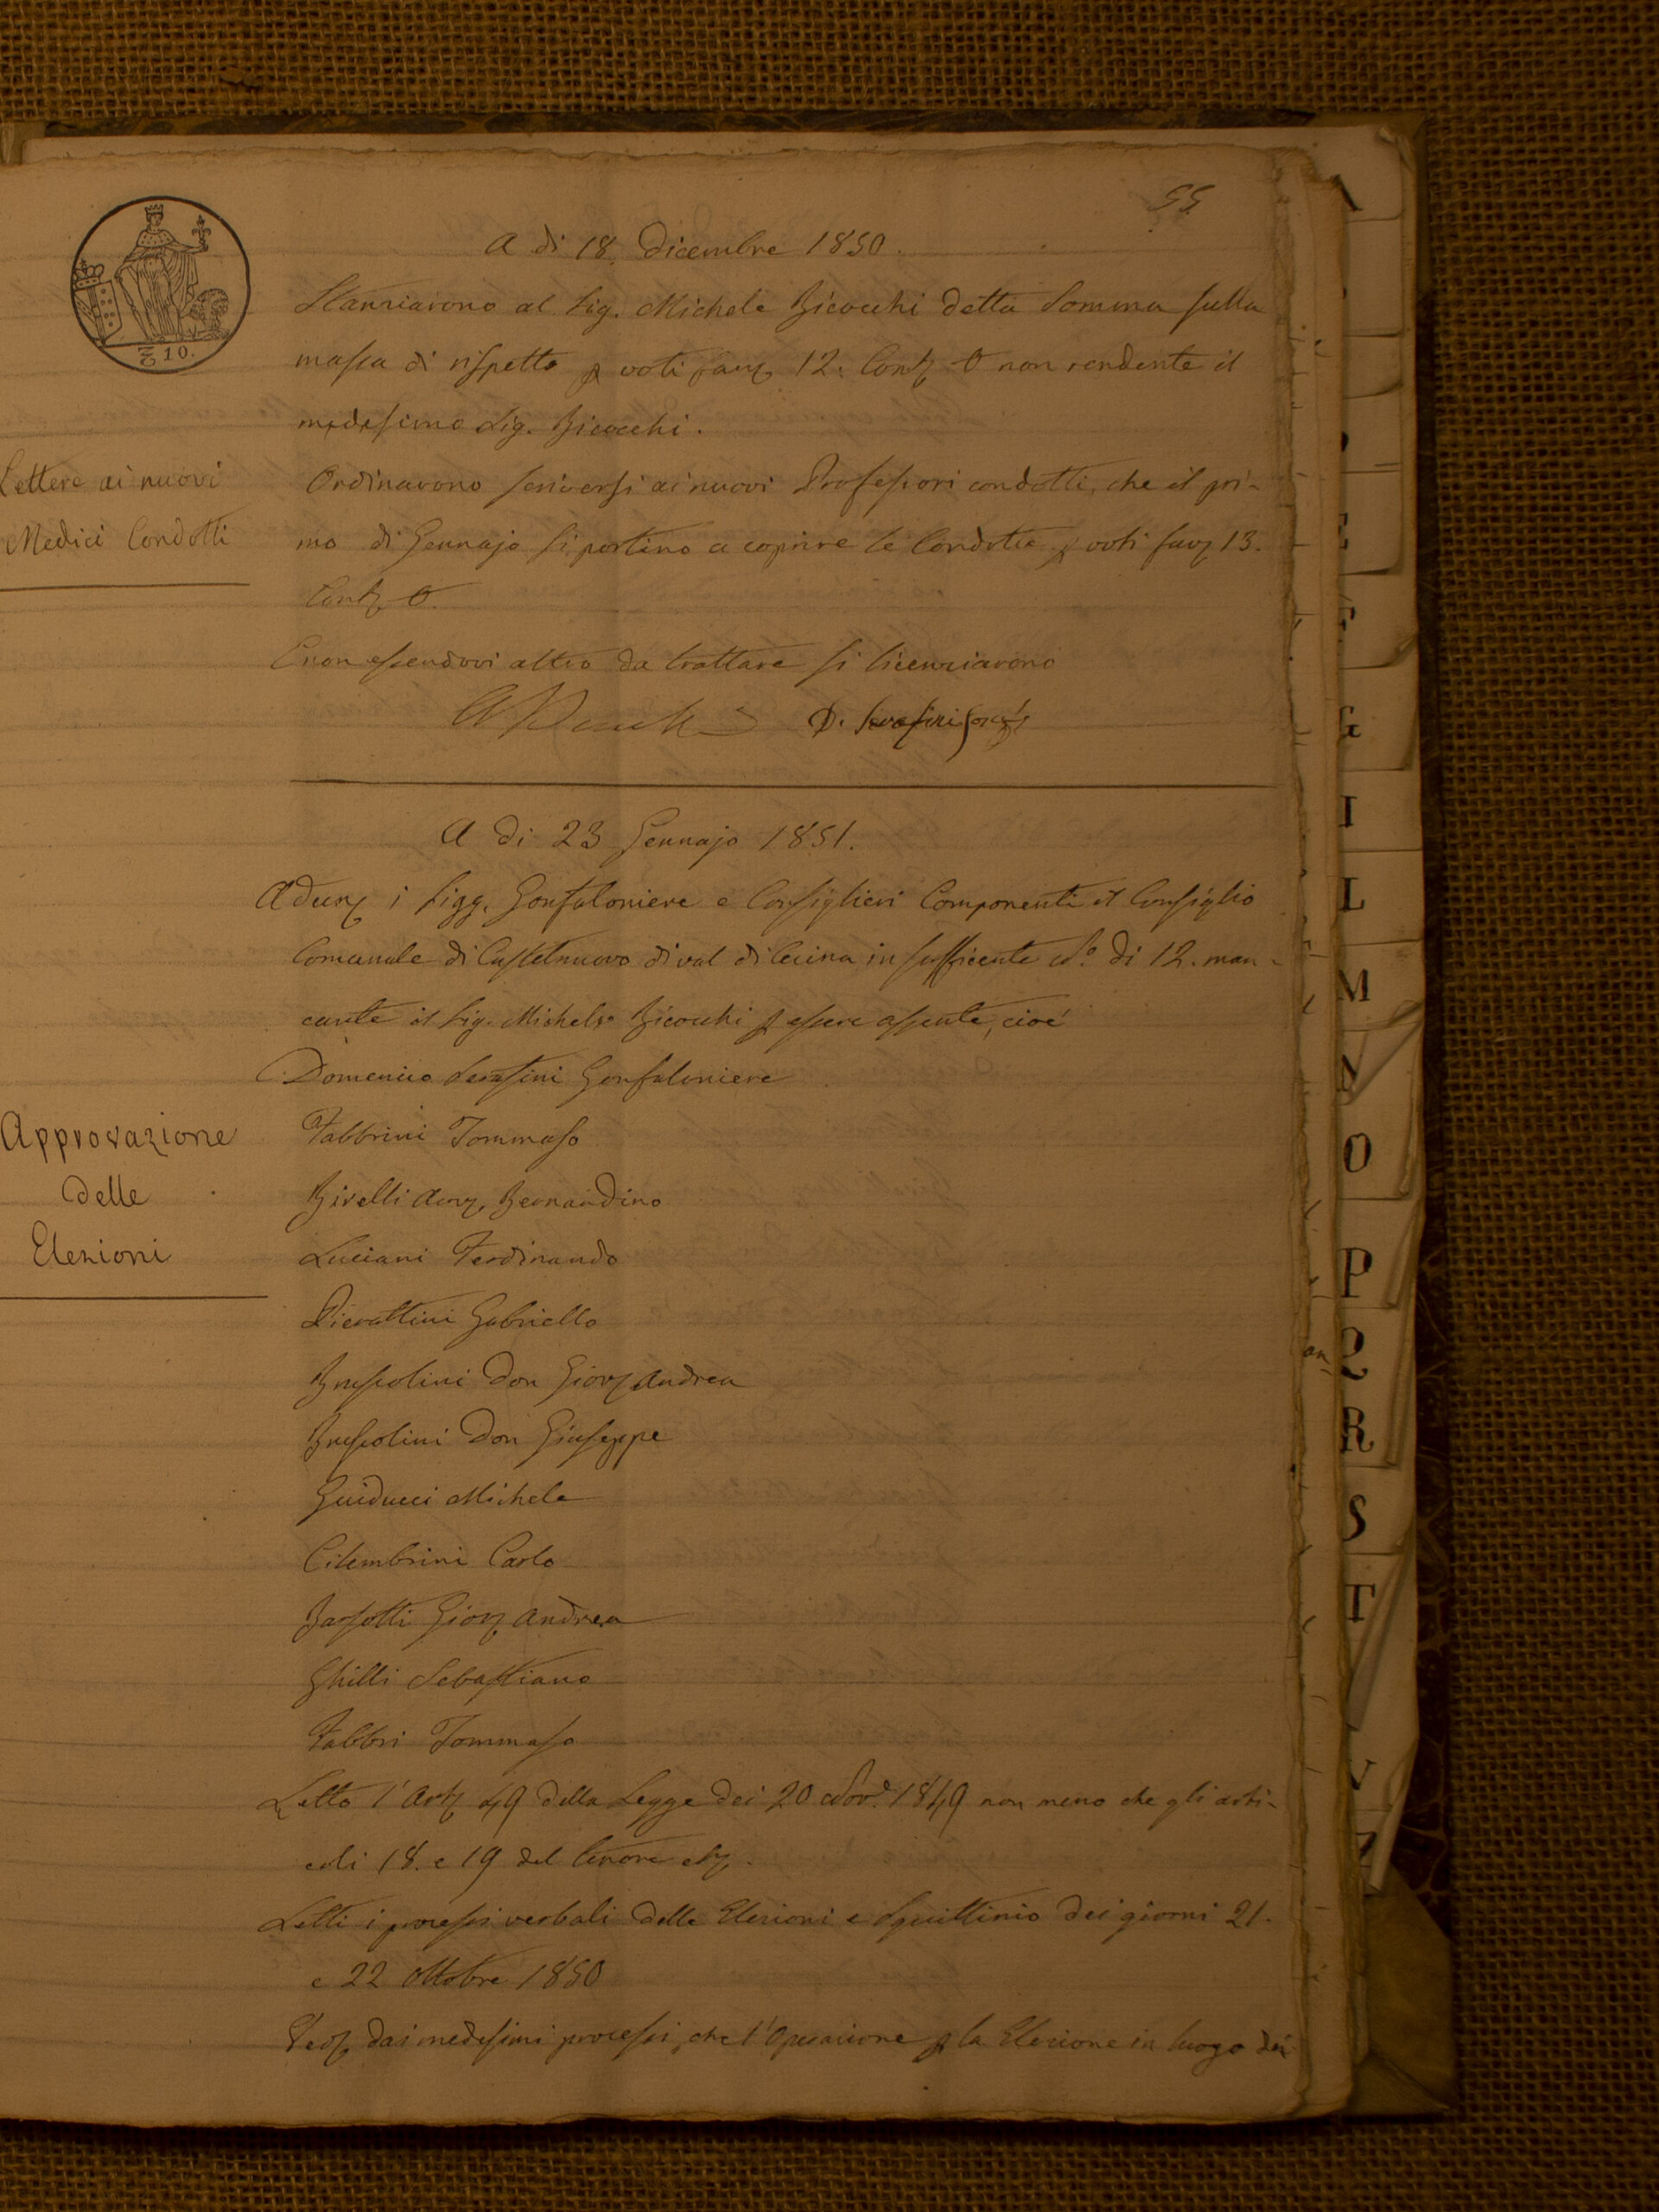 55
A dì 18. Dicembre 1850.
Stanziarono al Sig. Michele Bicocchi detta Somma sulla
massa di rispetto p voti fav 12. Cont 0 non rendente il
medesimo Sig. Bicocchi.
Lettere ai nuovi
Medici Condotti
Ordinarono scriversi ai nuovi Professori condotti, che il pri-
mo di Gennajo si portino a coprire le Condotte p voti fav 13.
Cont 0.
E non essendovi altro da trattare si licenziarono
D. Serafini Gonf
A dì 23 Gennajo 1851.
Adun i Sigg. Gonfaloniere e Consiglieri Componenti il Consiglio
Comunale di Castelnuovo di val di Cecina in sufficiente N.º di 12. man-
cante il Sig. Michele Bicocchi p essere assente, cioé
Domenico Serafini Gonfaloniere
Approvazione
delle
Elezioni
Fabbrini Tommaso
Birelli Bernardino
Luciani Ferdinando
Pierattini Gabriello
Bruscolini Don Giov Andrea
Bruscolini Don Giuseppe
Guiducci Michele
Cilembrini Carlo
Barsotti Giov Andrea
Ghilli Sebastiano
Fabbri Tommaso
Letto l'Art 49 della Legge dei 20 Nov.e 1849 non meno che gli arti-
coli 18. e 19 del tenore
Letti i processi verbali delle Elezioni e Squittinio dei giorni 21.
e 22 Ottobre 1850
dai medesimi processi, che l'Operazione p la Elezione in luogo dei
₤ 10.
A
E
F
G
I
L
M
N
O
P
Q
R
S
T
V
Z